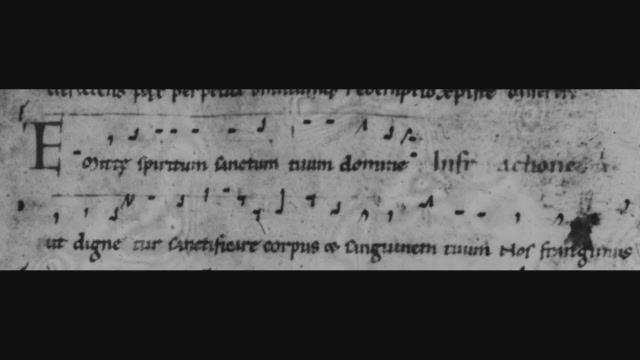 pax perpetua redemptio
Emittę spiritum sanctum tuum domine In fractione
ut digne tur sanctificare corpus & sanguinem tuum Nos frangimus